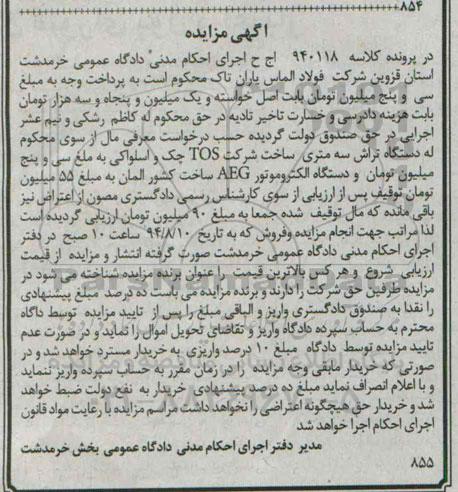 ۸۵۴
آگهی مزایده
در پرونده کلاسه ۹۴۰۱۱۸ اج ح اجرای احکام مدنی دادگاه عمومی خرمدشت
استان قزوین شرکت فولاد الماس یاران تاک محکوم است به پرداخت وجه به مبلغ
سی و پنج میلیون تومان بابت اصل خواسته و یک میلیون و پنجاه و سه هزار تومان
بابت هزینه دادرسی و خسارت تاخیر تادیه در حق محکوم له کاظم رشکی و نیم عشر
اجرایی در حق صندوق دولت گردیده حسب درخواست معرفی مال از سوی محکوم
له دستگاه تراش سه متری ساخت شرکت TOS چک و اسلواکی به ملغ سی و پنج
میلیون تومان و دستگاه الکتروموتور AEG ساخت کشور المان به مبلغ ۵۵ میلیون
تومان توقیف پس از ارزیابی از سوی کارشناس رسمی دادگستری مصون از اعتراض نیز
باقی مانده که مال توقیف شده جمعا به مبلغ ۹۰ میلیون تومان ارزیابی گردیده است
لذا مراتب جهت انجام مزایده وفروش که به تاریخ ۹۴/۸/۱۰ ساعت ۱۰ صبح در دفتر
اجرای احکام مدنی دادگاه عمومی خرمدشت صورت گرفته انتشار و مزایده از قیمت
ارزیابی شروع و هر کس بالاترین قیمت را عنوان برنده مزایده شناخته می شود در
مزایده طرفین حق شرکت را دارند و برنده مزایده می باست ده درصد مبلغ پیشنهادی
را نقدا به صندوق دادگستری واریز و الباقی مبلغ را پس از تایید مزایده توسط داگاه
محترم به حساب سپرده دادگاه واریز و تقاضای تحویل اموال را نماید و در صورت عدم
تایید مزایده توسط دادگاه مبلغ ۱۰ درصد واریزی به خریدار مسترد خواهد شد و در
صورتی که خریدار مابقی وجه مزایده را در زمان مقرر به حساب سپرده واریز ننماید
و با اعلام انصراف نماید مبلغ ده درصد پیشنهادی خریدار به نفع دولت ضبط خواهد
شد و خریدار حق هیچگونه اعتراضی را نخواهد داشت مراسم مزایده با رعایت مواد قانون
اجرای احکام اجرا خواهد شد
مدیر دفتر اجرای احکام مدنی دادگاه عمومی بخش خرمدشت
۸۵۵